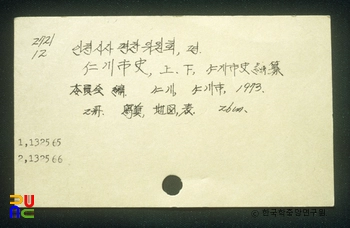 2721
12
인천시사 편찬 위원회, 편.
仁川市史, 上.下, 仁川市史編纂
委員会 編 仁川, 仁川市, 1973.
2冊. 寫真, 地図, 表. 26cm.
1,132565
2,132566
한국학중앙연구원